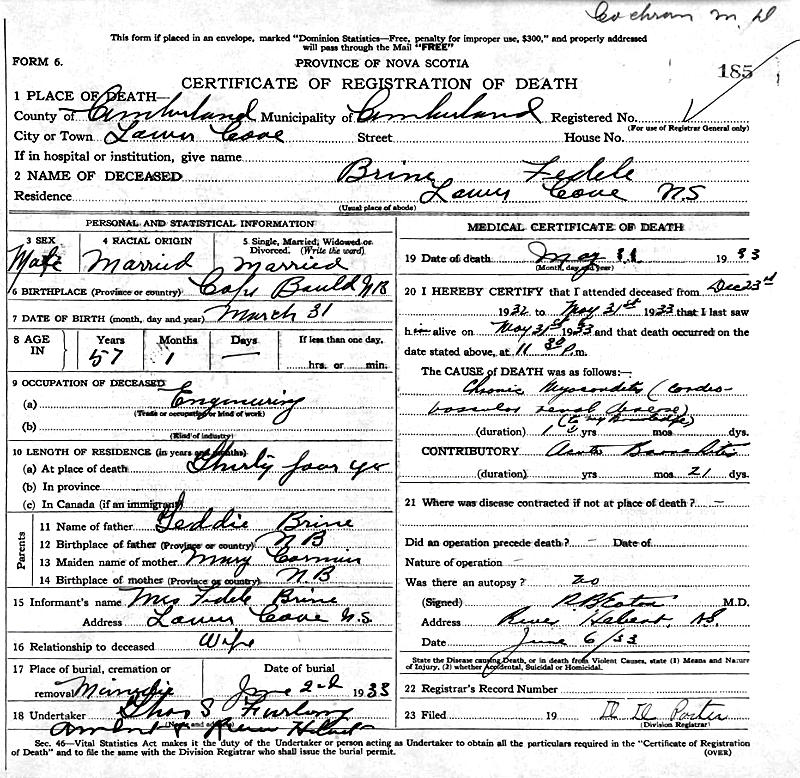 Cochran M.D
This form if placed in an envelope, marked "Dominion Statistics—Free, penalty for improper use, $300," and properly addressed
will pass through the Mail "FREE"
FORM 6.
PROVINCE OF NOVA SCOTIA
185
CERTIFICATE OF REGISTRATION OF DEATH
1 PLACE OF DEATH—
County of Cumberland Municipality of Cumberland Registered No.
(For use of Registrar General only)
City or Town Lower Cove Street House No.
If in hospital or institution, give name
2 NAME OF DECEASED Brine Fedele
Residence Lower Cove N.S
(Usual place of abode)
PERSONAL AND STATISTICAL INFORMATION
3 SEX 4 RACIAL ORIGIN 5 Single, Married, Widowed or Divorced. (Write the word)
Male Married Married
6 BIRTHPLACE (Province or country) Cape Bauld NB
7 DATE OF BIRTH (month, day and year) March 31
8 AGE IN Years Months Days If less than one day,
57 1 — hrs. or min.
9 OCCUPATION OF DECEASED
(a) Engineering
(Trade or occupation or kind of work)
(b)
(Kind of industry)
10 LENGTH OF RESIDENCE (in years and months)
(a) At place of death Thirty four yr
(b) In province
(c) In Canada (if an immigrant)
Parents
11 Name of father Feddie Brine
12 Birthplace of father (Province or country) NB
13 Maiden name of mother Mary Cormier
14 Birthplace of mother (Province or country) NB
15 Informant's name Mrs Fidele Brine
Address Lower Cove N.S.
16 Relationship to deceased Wife
17 Place of burial, cremation or removal Minudie Date of burial June 2nd 1933
18 Undertaker Thos S Furlong
(Name and address)
Amherst & River Hebert
MEDICAL CERTIFICATE OF DEATH
19 Date of death May 31 1933
(Month, day and year)
20 I HEREBY CERTIFY that I attended deceased from Dec 23rd
1932 to May 31st 1933 that I last saw
him alive on May 31st 1933 and that death occurred on the
date stated above, at 11 30 P.m.
The CAUSE OF DEATH was as follows:—
Chronic Myocarditis (cardio-
vascular renal disease)
(to my knowledge)
(duration) 1 yrs mos dys.
CONTRIBUTORY Acute Bronchitis
(duration) yrs mos 21 dys.
21 Where was disease contracted if not at place of death? –
Did an operation precede death? – Date of
Nature of operation –
Was there an autopsy? no
(Signed) R B Eaton M.D.
Address River Hebert, N.S.
Date June 6/33
State the Disease causing Death, or in death from Violent Causes, state (1) Means and Nature
of Injury, (2) whether Accidental, Suicidal or Homicidal.
22 Registrar's Record Number
23 Filed 19 D D Porter
(Division Registrar)
Sec. 46—Vital Statistics Act makes it the duty of the Undertaker or person acting as Undertaker to obtain all the particulars required in the "Certificate of Registration
of Death" and to file the same with the Division Registrar who shall issue the burial permit.
(OVER)